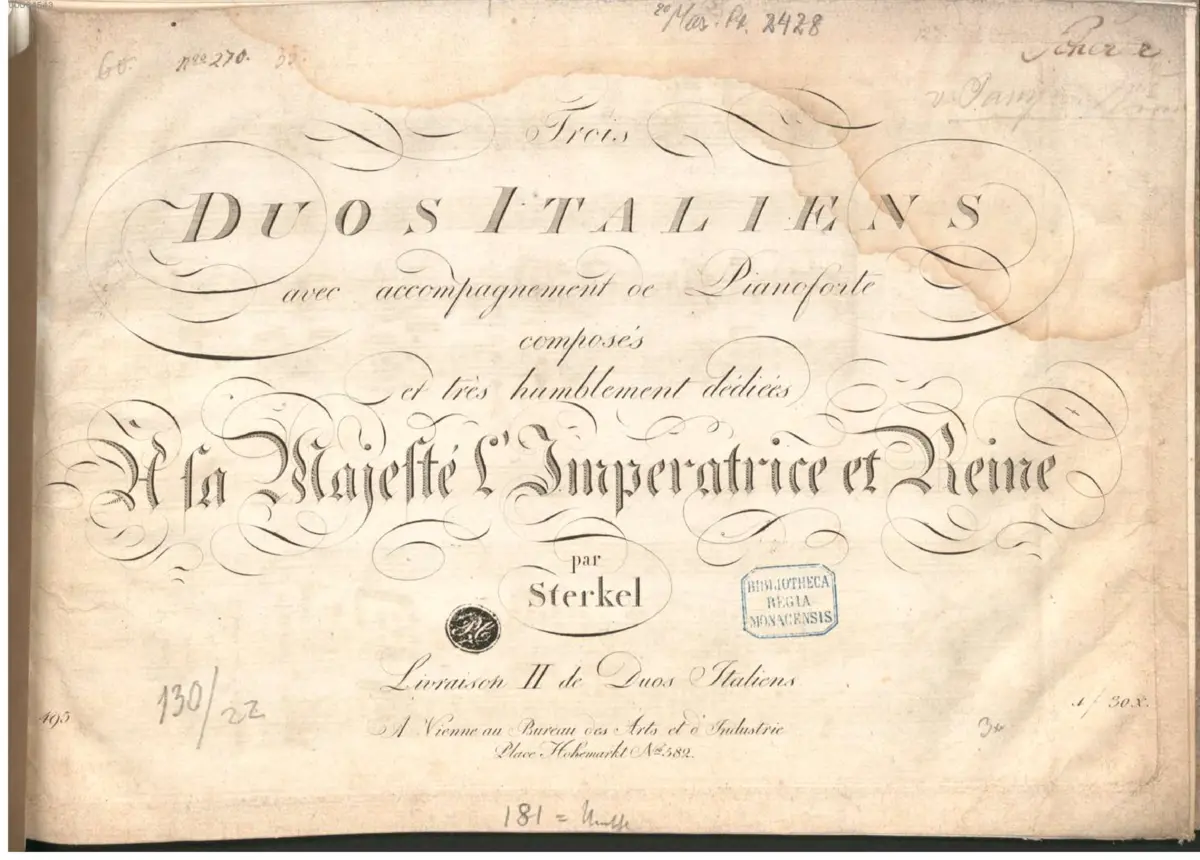 20 Mus. Pr. 2428
No 270.
Trois
DUOS ITALIENS
avec accompagnement de Pianoforte
composés
et très humblement dédiées
À sa Majesté l'Imperatrice et Reine
par
Sterkel
BIBLIOTHECA
REGIA
MONACENSIS
Livraison II de Duos Italiens
130/22
495
1 f 30 x.
A Vienne au Bureau des Arts et d'Industrie
Place Hohemarkt No. 582.
181 =